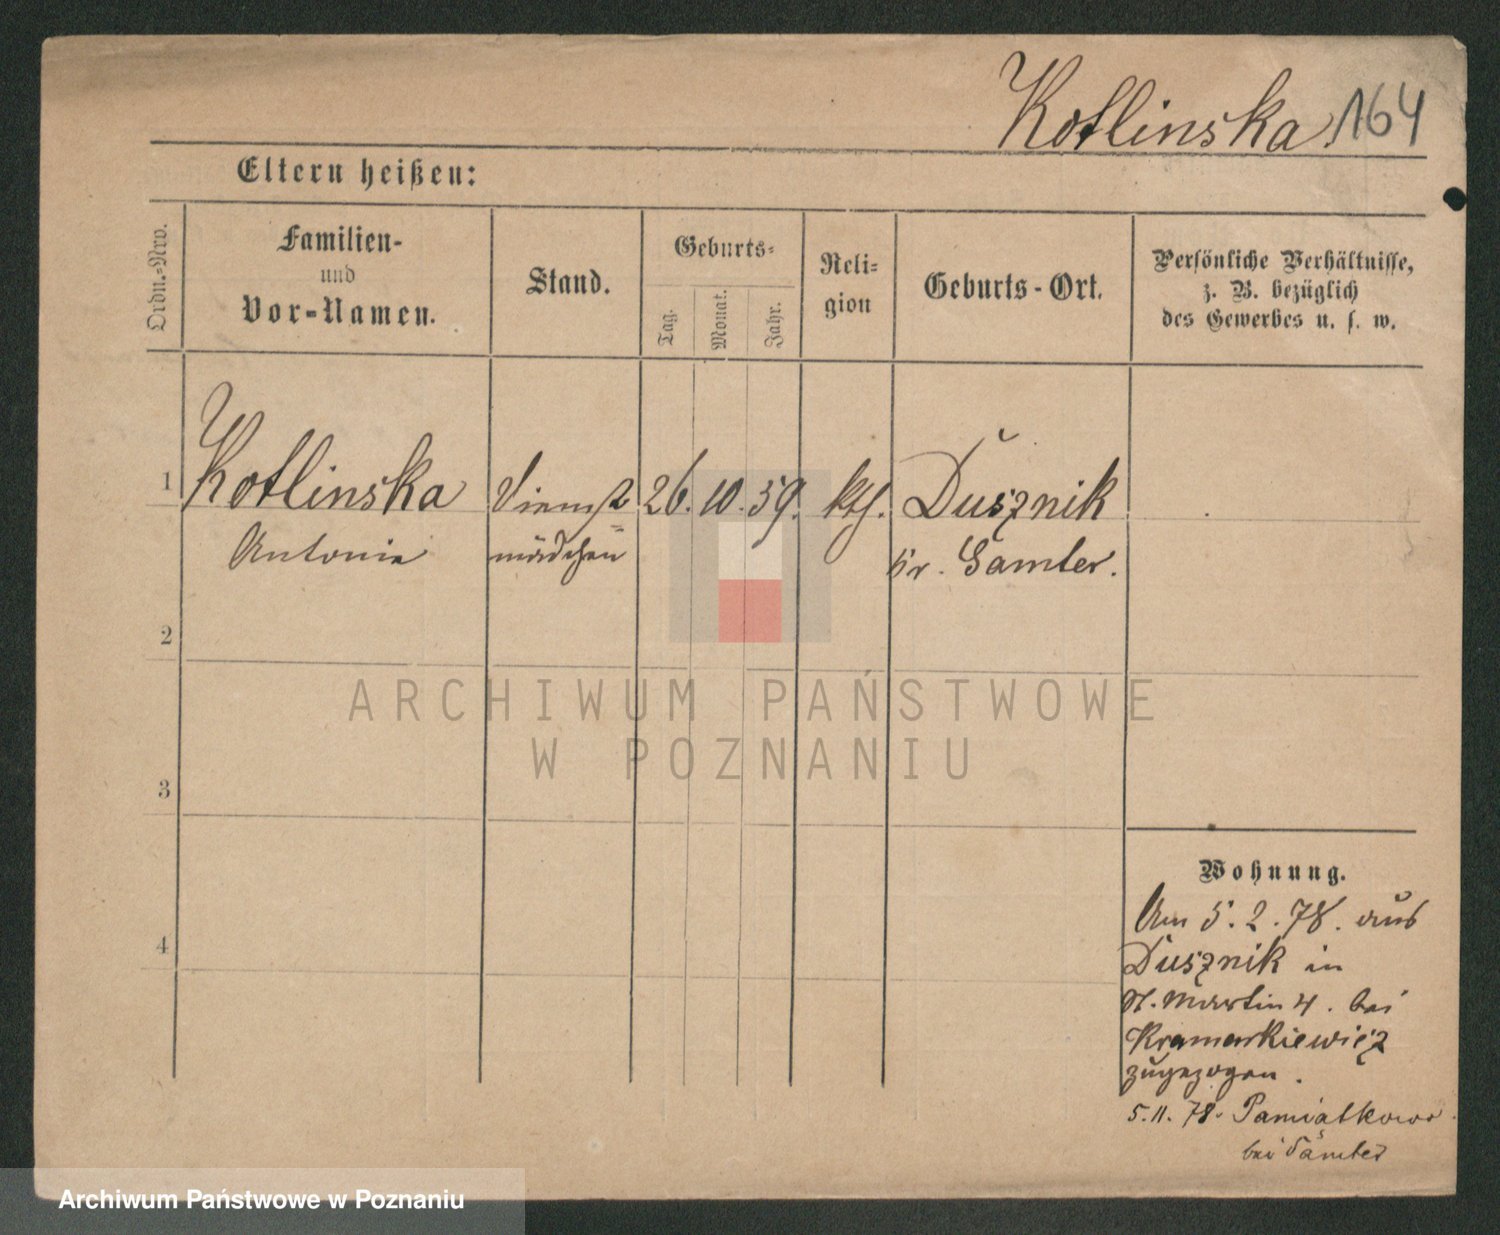 Kotlinska 164
Eltern heißen:
Ordn.=Nro.
Familien-
und
Vor-Namen.
Stand.
Geburts=
Tag.
Monat.
Jahr.
Reli=
gion
Geburts-Ort.
Persönliche Verhältnisse,
z. B. bezüglich
des Gewerbes u. s. w.
1 Kotlinska Dienst= 26. 10. 59. kth. Dusznik
Antonie mädchen Kr. Samter.
2
3
4
Wohnung.
Am 5. 2. 78. aus
Dusznik in
St. Martin 4. bei
Kramarkiewicz
zugezogen.
5.11.78. Pamiatkowo
bei Samter
ARCHIWUM PAŃSTWOWE
W POZNANIU
Archiwum Państwowe w Poznaniu